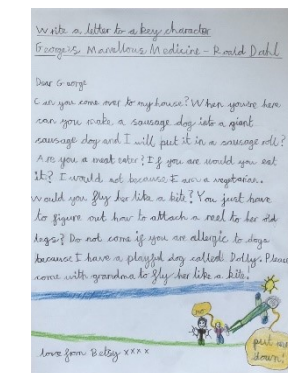 Write a letter to a key character
George's Marvellous Medicine - Roald Dahl
Dear George
Can you come over to my house? When you're here
can you make a sausage dog into a giant
sausage dog and I will put it in a sausage roll?
Are you a meat eater? If you are would you eat
it? I would not because I am a vegetarian.
Would you fly her like a kite? You just have
to figure out how to attach a reel to her old
legs? Do not come if you are allergic to dogs
because I have a playful dog called Dolly. Please
come with grandma to fly her like a kite!
put me
down!
love from Betsy xxxx